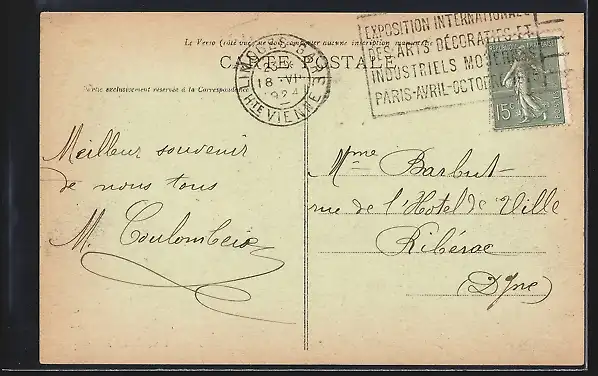 Le Verso (côté vue) ne doit comporter aucune inscription manuscrite
CARTE POSTALE
Côté exclusivement réservé à la Correspondance
LIMOGES-GARE
18 -VI
1924
HTE VIENNE
EXPOSITION INTERNATIONALE
DES ARTS DÉCORATIFS ET
INDUSTRIELS MODERNES
PARIS-AVRIL-OCTOBRE
15c
POSTES
Meilleur souvenir
de nous tous
M. Coulombeix
Mme Barbut
rue de l'Hotel de Ville
Ribérac
(Dgne)